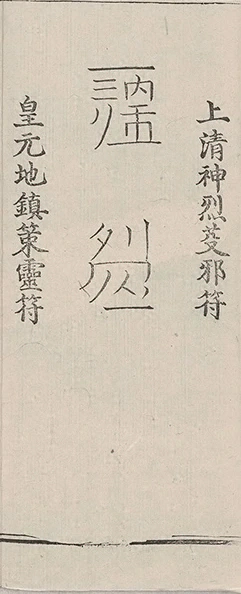 上清神烈芟邪符
皇元地鎮策靈符